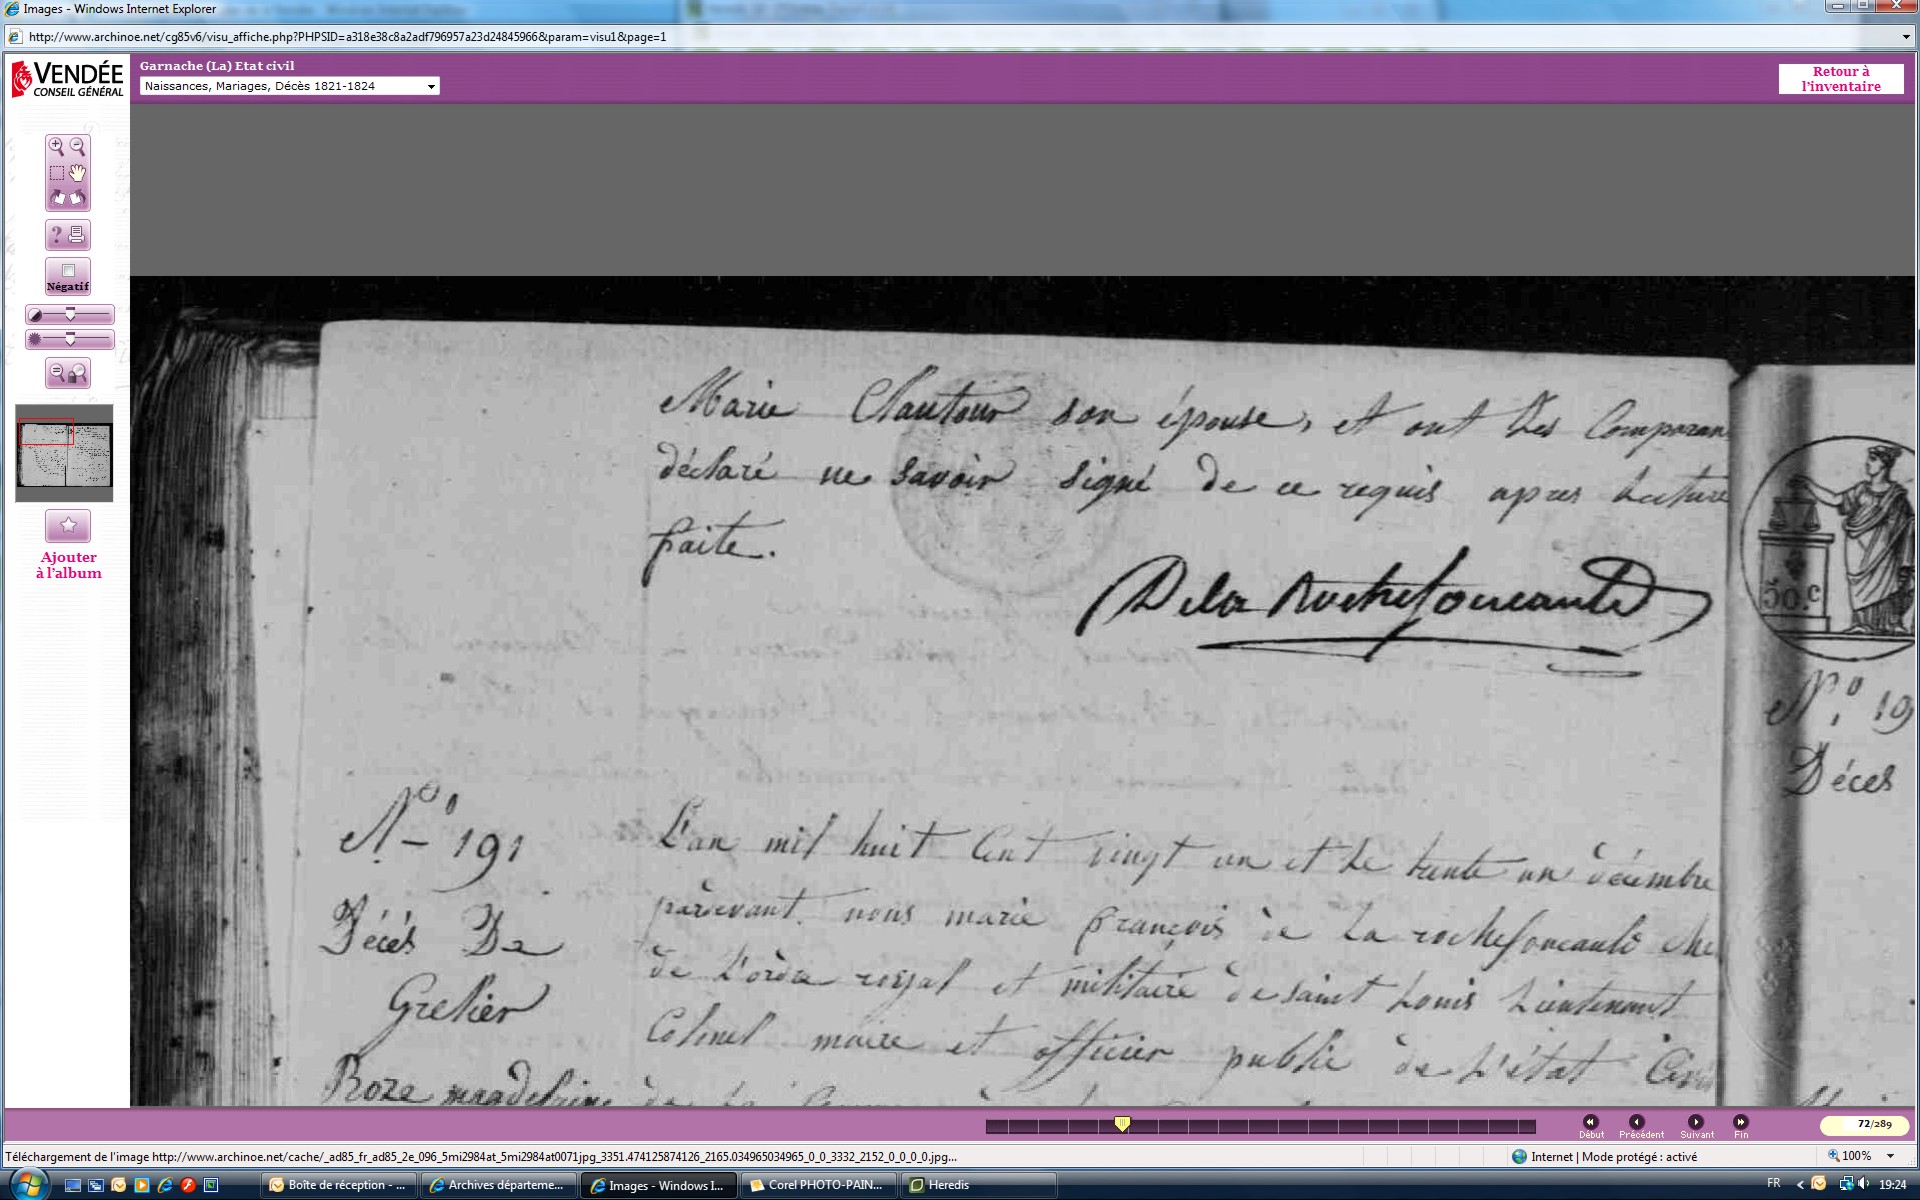 Images - Windows Internet Explorer
http://www.archinoe.net/cg85v6/visu_affiche.php?PHPSID=a318e38c8a2adf796957a23d24845966&param=visu1&page=1
VENDÉE
CONSEIL GÉNÉRAL
Garnache (La) Etat civil
Naissances, Mariages, Décès 1821-1824
Retour à
l'inventaire
Négatif
Ajouter
à l'album
Marie son épouse, et ont les Comparan
déclaré ne savoir signé de ce requis apres Lecture
faite.
De la Rochefoucauld
50.c
N.° 191
Décés De
Grelier
Roze magdelaine
L'an mil huit Cent vingt un et Le trente un décembre
pardevant nous marie françois de La rochefoucauld che
de L'ordre royal et militaire de saint Louis Lieutenant
Colonel maire et officier public de L'état Civil
de La
N.° 19
Déces
Début
Précédent
Suivant
Fin
72/289
Téléchargement de l'image http://www.archinoe.net/cache/_ad85_fr_ad85_2e_096_5mi2984at_5mi2984at0071jpg_3351.474125874126_2165.034965034965_0_0_3332_2152_0_0_0_0.jpg...
Internet | Mode protégé : activé
100%
Boîte de réception - ...
Archives départeme...
Images - Windows I...
Corel PHOTO-PAIN...
Heredis
FR
19:24